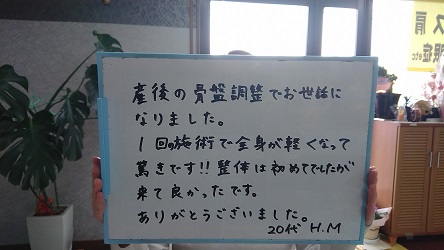 産後の骨盤調整でお世話に
なりました。
1回の施術で全身が軽くなって
驚きです!!整体は初めてでしたが
来て良かったです。
ありがとうございました。
20代 H.M
肩
etc